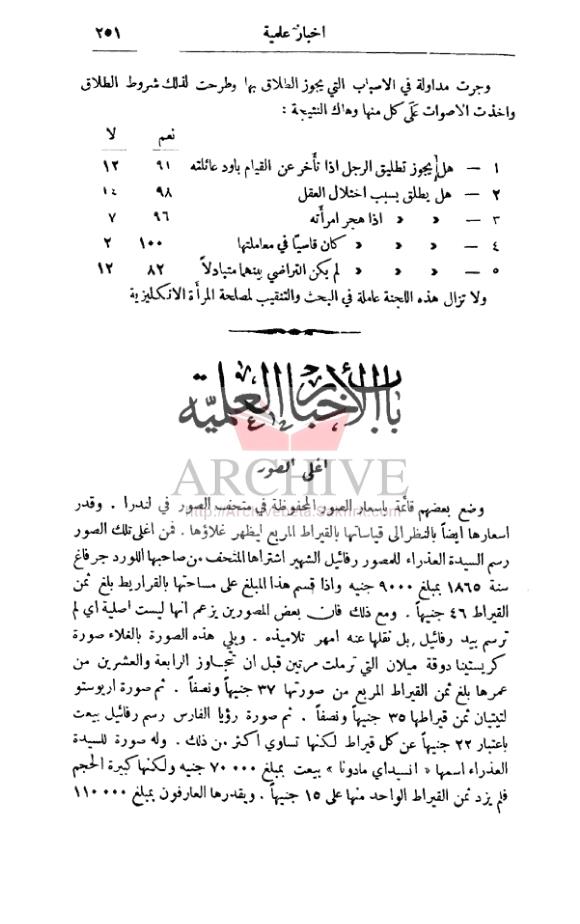 اخبار علمية ٢٥١
وجرت مداولة في الاسباب التي يجوز الطلاق بها وطرحت لذلك شروط الطلاق
واخذت الاصوات على كل منها وهاك النتيجة :
نعم لا
١ — هل يجوز تطليق الرجل اذا تأخر عن القيام باود عائلته ٩١ ١٢
٢ — هل يطلق بسبب اختلال العقل ٩٨ ١٤
٣ — « « « اذا هجر امرأته ٩٦ ٧
٤ — « « « كان قاسيًا في معاملتها ١٠٠ ٢
٥ — « « « لم يكن التراضي بينهما متبادلاً ٨٢ ١٢
ولا تزال هذه اللجنة عاملة في البحث والتنقيب لمصلحة المرأة الانكليزية
باب الأخبار العلمية
ARCHIVE
اغلى الصور
وضع بعضهم قائمة باسعار الصور المحفوظة في متحف الصور في لندرا . وقدر
اسعارها ايضاً بالنظر الى قياساتها بالقيراط المربع ليظهر غلاؤها . فمن اغلى تلك الصور
رسم السيدة العذراء للمصور رفائيل الشهير اشتراها المتحف من صاحبها اللورد جرفاغ
سنة ١٨٦٥ بمبلغ ٩٠٠٠ جنيه واذا قسم هذا المبلغ على مساحتها بالقراريط بلغ ثمن
القيراط ٤٦ جنيهاً . ومع ذلك فان بعض المصورين يزعم انها ليست اصلية اي لم
ترسم بيد رفائيل بل نقلها عنه امهر تلاميذه . ويلي هذه الصورة بالغلاء صورة
كريستينا دوقة ميلان التي ترملت مرتين قبل ان تتجاوز الرابعة والعشرين من
عمرها بلغ ثمن القيراط المربع من صورتها ٣٧ جنيهاً ونصفاً . ثم صورة اريوستو
لتيتيان ثمن قيراطها ٣٥ جنيهاً ونصفاً . ثم صورة رؤيا الفارس رسم رفائيل بيعت
باعتبار ٢٢ جنيهاً عن كل قيراط لكنها تساوي اكثر من ذلك . وله صورة للسيدة
العذراء اسمها « انسيداي مادونا » بيعت بمبلغ ٧٠٠٠٠ جنيه ولكنها كبيرة الحجم
فلم يزد ثمن القيراط الواحد منها على ١٥ جنيهاً . ويقدرها العارفون بمبلغ ١١٠٠٠٠